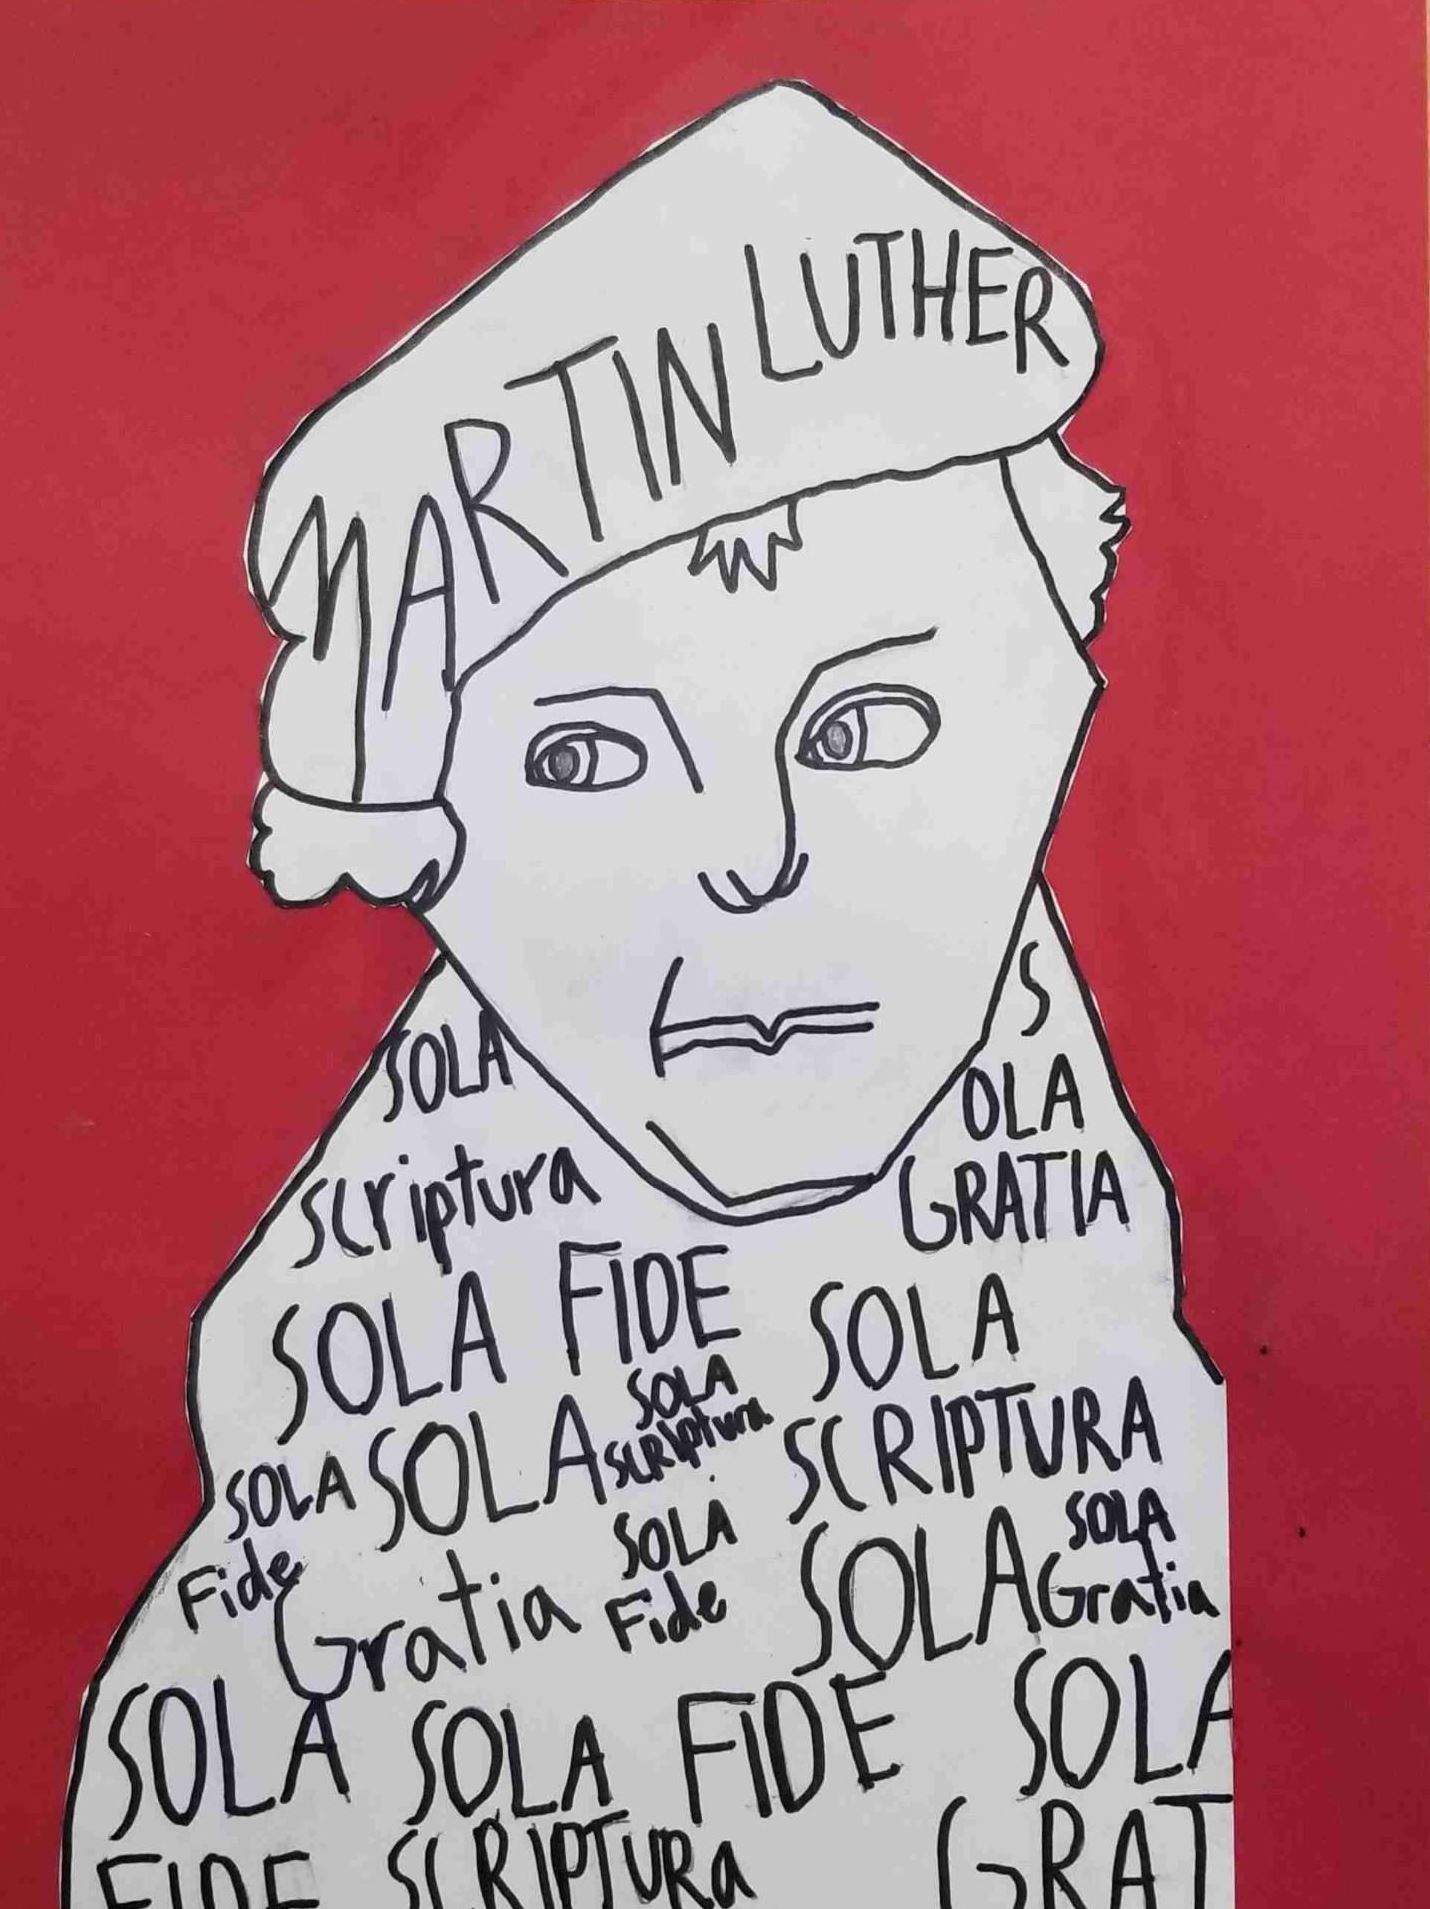 MARTIN LUTHER
SOLA
Scriptura
S
OLA
GRATIA
SOLA FIDE
SOLA
SCRIPTURA
SOLA
SCRIPtura
SOLA
Fide
SOLA
Gratia
SOLA
Fide
SOLA
SOLA
Gratia
SOLA
FIDE
SOLA FIDE
SCRIPTURA
SOLA
GRAT